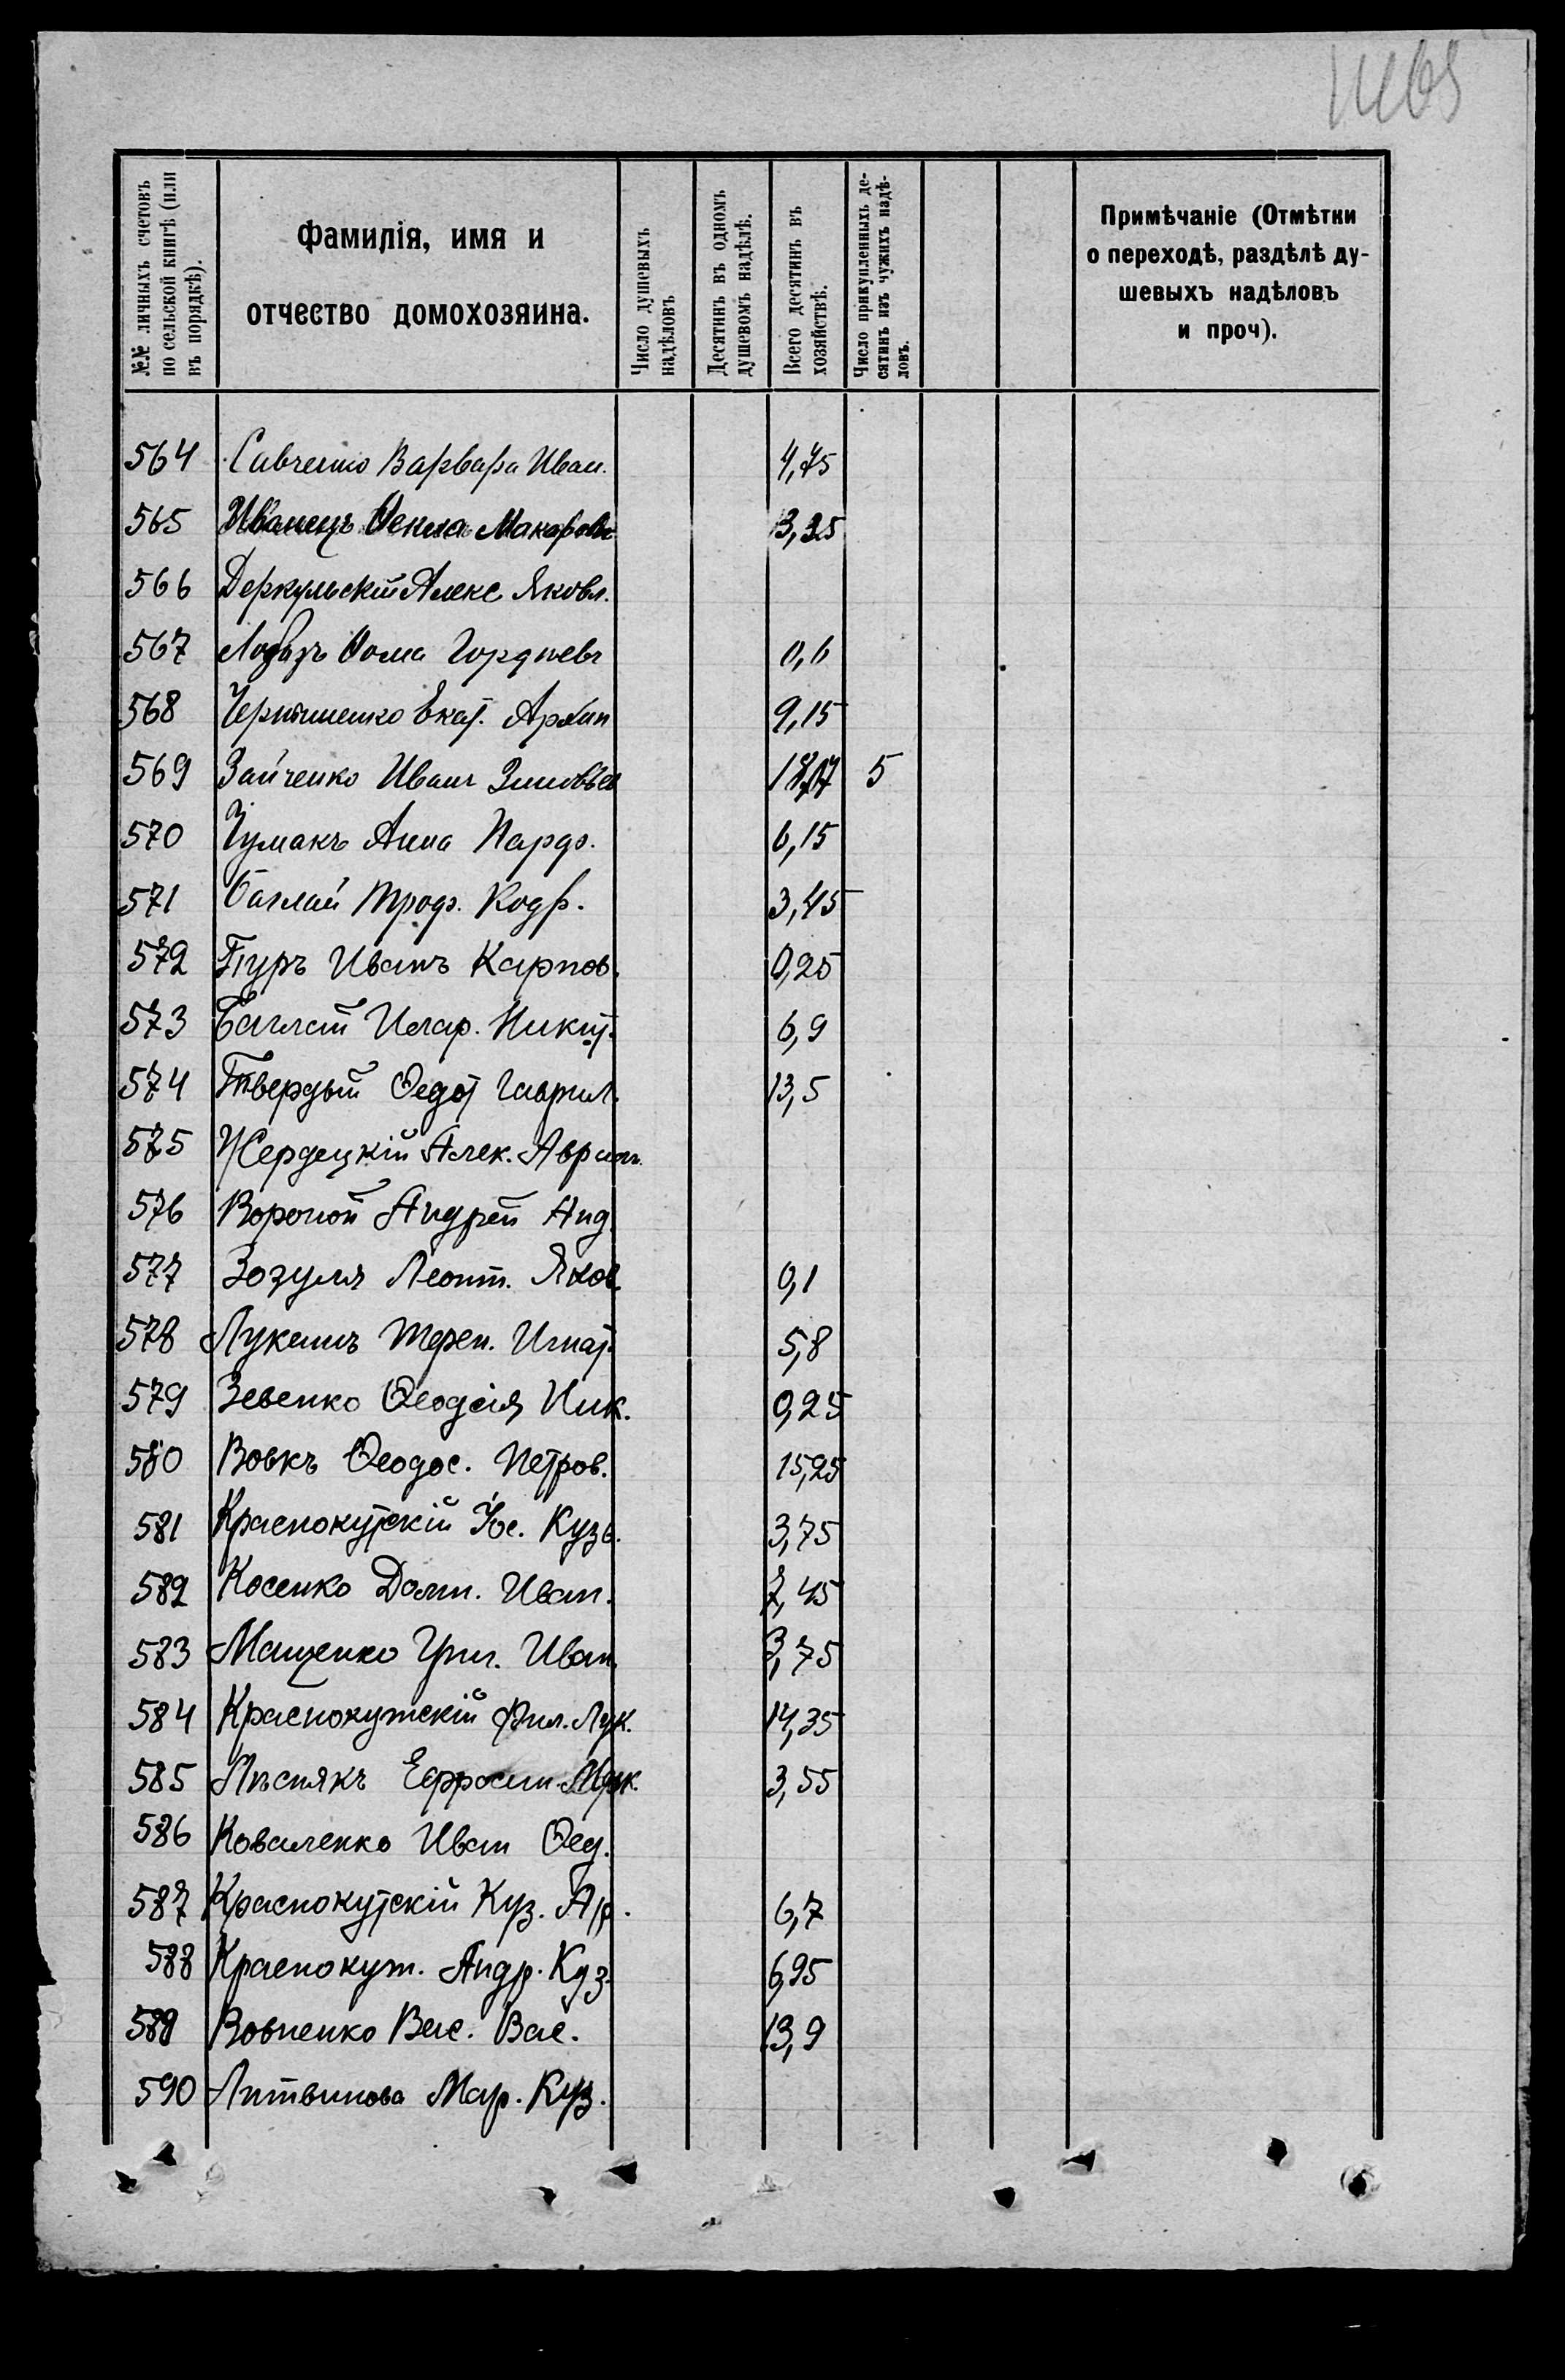 №№ личныхъ счетовъ по сельской книгѣ (или въ порядкѣ).
Фамилія, имя и отчество домохозяина.
Число душевыхъ надѣловъ
Десятинъ въ одномъ душевомъ надѣлѣ.
Всего десятинъ въ хозяйствѣ.
Число прикупленныхъ десятинъ изъ чужихъ надѣловъ.
Примѣчаніе (Отмѣтки
о переходѣ, раздѣлѣ ду-
шевыхъ надѣловъ
и проч).
564 Савченко Варвара Иван. 4,75
565 Иванецъ Ѳекла Макаров. 13,35
566 Деркульскій Алекс Яковл.
567 Ѳома Гордѣевъ 0,6
568 Чернышенко Екат. Архип 9,15
569 Зайченко Иванъ Зиновьев 5
570 Чумакъ Анна Парф. 6,15
571 Баглай Троф. Кодр. 3,45
572 Туръ Иванъ Карпов. 0,25
573 Баглай Илар. Никит. 6,9
574 Твердый Ѳедот Гаврил. 13,5
575 Жердецкій Алек. Аврам.
576 Вороной Андрей Анд.
577 Зозуля Леонт. Яков. 0,1
578 Лукашъ Терен. Игнат. 5,8
579 Зевенко Ѳеодсія Ник. 0,25
580 Вовкъ Ѳеодос. Петров. 15,25
581 Краснокутскій Іос. Кузь. 3,75
582 Косенко Далм. Иван. 7,45
583 Мащенко Григ. Иван. 3,75
584 Краснокутскій Фил. Лук. 14,35
585 Пѣснякъ Ефросин. Марк. 3,55
586 Коваленко Иван Ѳед.
587 Краснокутскій Куз. Ар. 6,7
588 Краснокут. Андр. Куз. 6,95
589 Вовненко Вас. Вас. 13,9
590 Литвинова Мар. Куз.